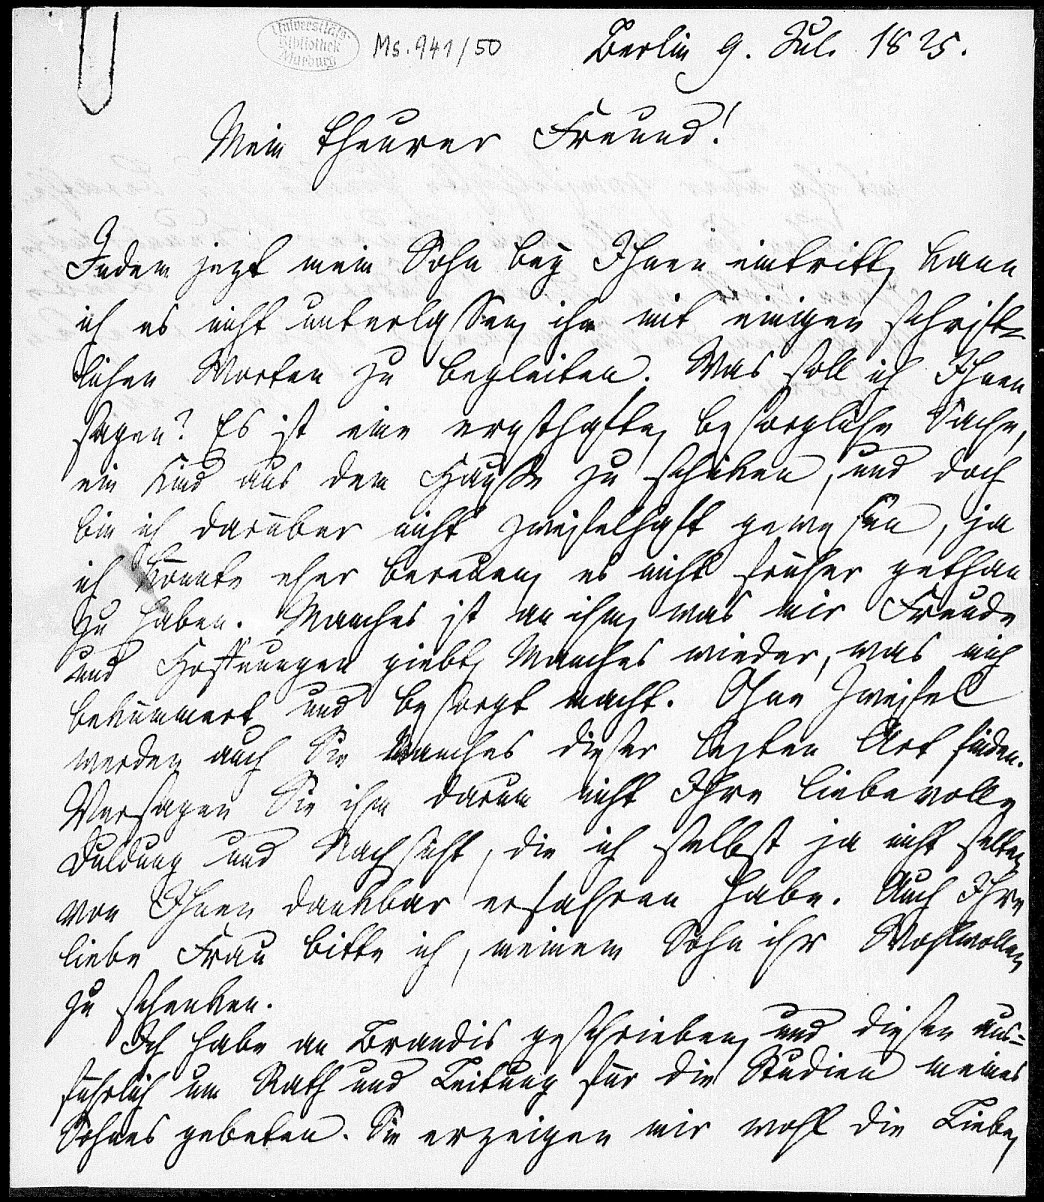 Universitäts-
Bibliothek
Marburg
Ms. 941/50
Berlin 9. Jul. 1825.
Mein theurer Freund!
Indem jezt mein Sohn bey Ihnen eintritt, kann
ich es nicht unterlassen, ihn mit einigen schrift-
lichen Worten zu begleiten. Was soll ich Ihnen
sagen? Es ist eine ernsthafte, besorgliche Sache,
ein Kind aus dem Hause zu schicken, und doch
bin ich darüber nicht zweifelhaft gewesen, ja
ich könnte eher bereuen, es nicht früher gethan
zu haben. Manches ist an ihm, was mir Freude
und Hoffnungen giebt, Manches wieder, was mich
bekümmert und besorgt macht. Ohne Zweifel
werden auch Sie Manches dieser lezten Art finden.
Versagen Sie ihm darum nicht Ihre liebevolle
Duldung und Nachsicht, die ich selbst ja nicht selten
von Ihnen dankbar erfahren habe. Auch Ihre
liebe Frau bitte ich, meinem Sohn ihr Wohlwollen
zu schenken.
Ich habe an Brandis geschrieben, und diesen aus-
führlich um Rath und Leitung für die Studien meines
Sohnes gebeten. Sie erzeigen mir wohl die Liebe,